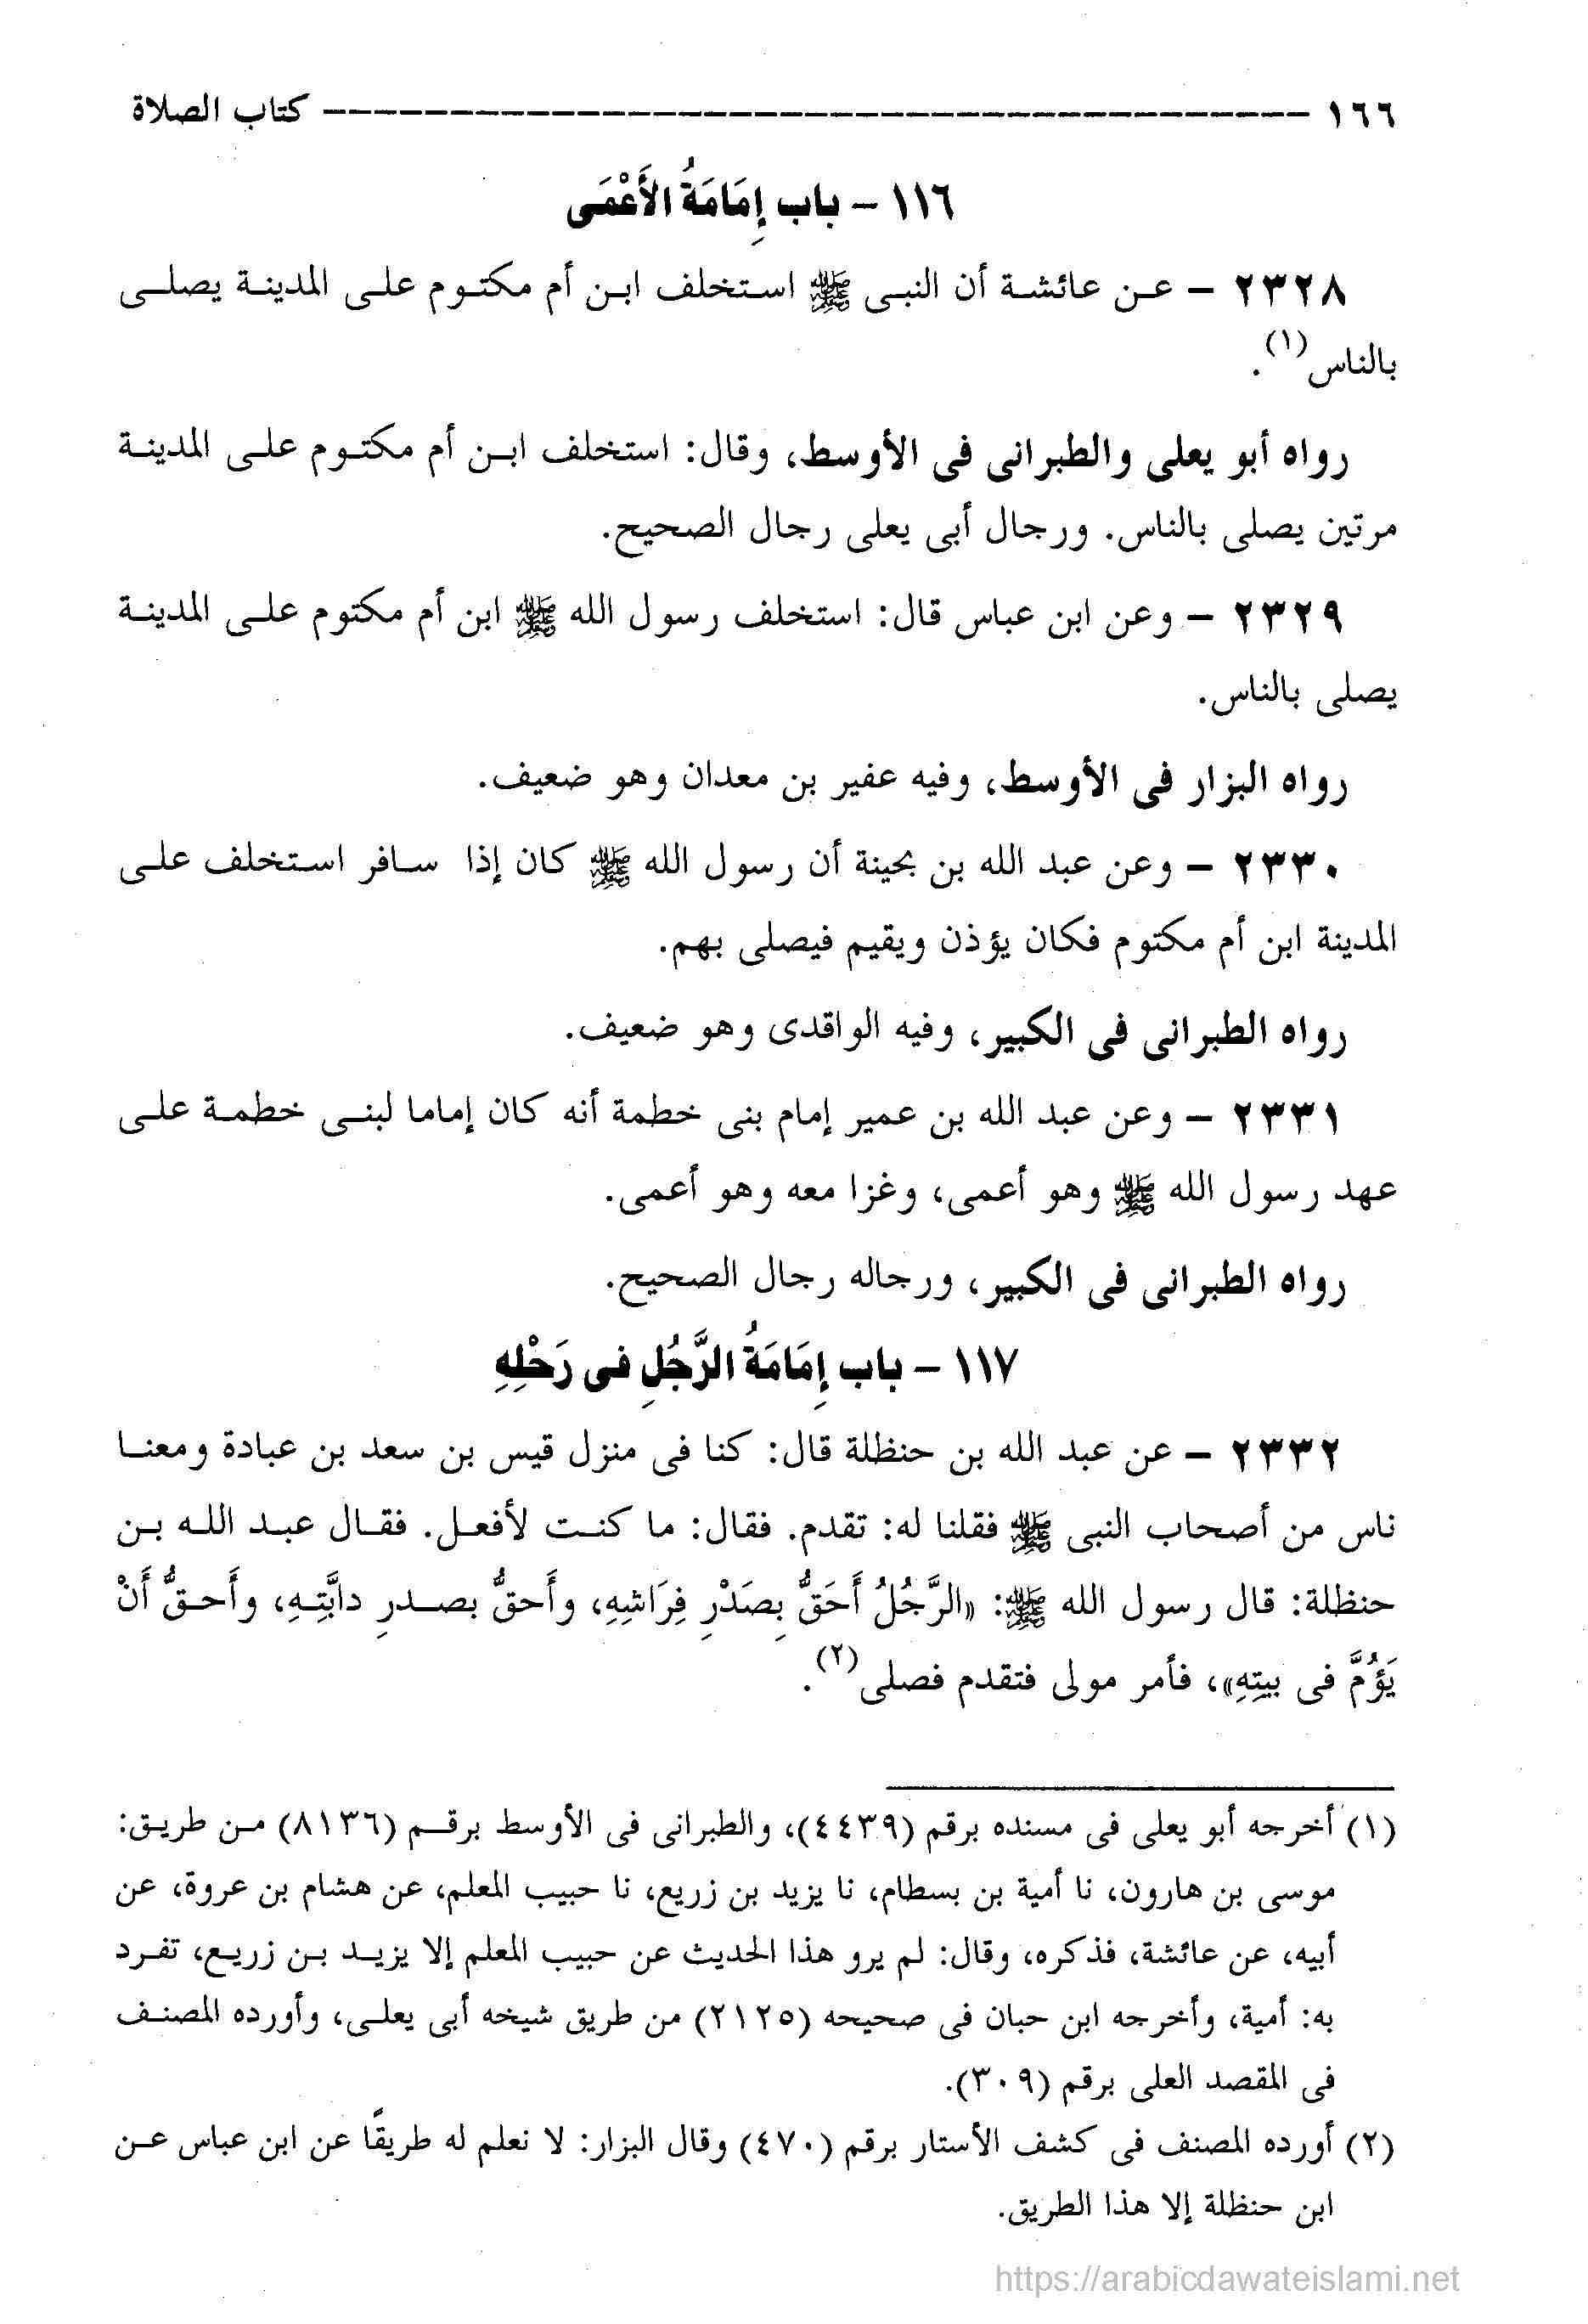 ١٦٦ ------------------------------------------ كتاب الصلاة
١١٦ - باب إِمَامَةُ الأَعْمَى
٢٣٢٨ - عن عائشة أن النبى ﷺ استخلف ابن أم مكتوم على المدينة يصلى
بالناس(١).
رواه أبو يعلى والطبرانى فى الأوسط، وقال: استخلف ابن أم مكتوم على المدينة
مرتين يصلى بالناس. ورجال أبى يعلى رجال الصحيح.
٢٣٢٩ - وعن ابن عباس قال: استخلف رسول الله ﷺ ابن أم مكتوم على المدينة
يصلى بالناس.
رواه البزار فى الأوسط، وفيه عفير بن معدان وهو ضعيف.
٢٣٣٠ - وعن عبد الله بن بحينة أن رسول الله ﷺ كان إذا سافر استخلف على
المدينة ابن أم مكتوم فكان يؤذن ويقيم فيصلى بهم.
رواه الطبرانى فى الكبير، وفيه الواقدى وهو ضعيف.
٢٣٣١ - وعن عبد الله بن عمير إمام بنى خطمة أنه كان إماما لبنى خطمة على
عهد رسول الله ﷺ وهو أعمى، وغزا معه وهو أعمى.
رواه الطبرانى فى الكبير، ورجاله رجال الصحيح.
١١٧ - باب إِمَامَةُ الرَّجُلِ فى رَحْلِهِ
٢٣٣٢ - عن عبد الله بن حنظلة قال: كنا فى منزل قيس بن سعد بن عبادة ومعنا
ناس من أصحاب النبى ﷺ فقلنا له: تقدم. فقال: ما كنت لأفعل. فقال عبد الله بن
حنظلة: قال رسول الله ﷺ: «الرَّجُلُ أَحَقُّ بِصَدْرِ فِرَاشِهِ، وأَحقُّ بصدرِ دابَّتِهِ، وأَحقُّ أَنْ
يَؤُمَّ فى بيتِهِ»، فأمر مولى فتقدم فصلى(٢).
(١) أخرجه أبو يعلى فى مسنده برقم (٤٤٣٩)، والطبرانى فى الأوسط برقم (٨١٣٦) من طريق:
موسى بن هارون، نا أمية بن بسطام، نا يزيد بن زريع، نا حبيب المعلم، عن هشام بن عروة، عن
أبيه، عن عائشة، فذكره، وقال: لم يرو هذا الحديث عن حبيب المعلم إلا يزيد بن زريع، تفرد
به: أمية، وأخرجه ابن حبان فى صحيحه (٢١٢٥) من طريق شيخه أبى يعلى، وأورده المصنف
فى المقصد العلى برقم (٣٠٩).
(٢) أورده المصنف فى كشف الأستار برقم (٤٧٠) وقال البزار: لا نعلم له طريقًا عن ابن عباس عن
ابن حنظلة إلا هذا الطريق.
https://arabicdawateislami.net